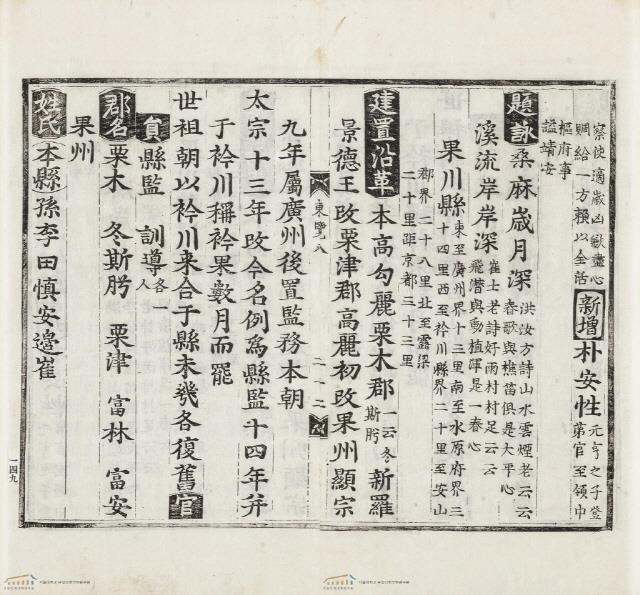 察使適歲凶歉盡心
賙給一方賴以全活
新增 朴安性 元亨之子登
第官至領中
樞府事
諡靖安
題詠 桑麻歲月深 洪汝方詩山水雲煙老云云
春歌與樵笛俱是大平心
溪流岸岸深 崔士老詩好雨村村足云云
飛潛與動植渾是一春心
果川縣 東至廣州界十三里南至水原府界三
十四里西至衿川縣界二十里至安山
郡界二十八里北至露梁
二十里距京都三十三里
建置沿革 本高勾麗栗木郡 一云冬斯肹 新羅
景德王改栗津郡高麗初改果州顯宗
東覽八 二十二
九年屬廣州後置監務本朝
太宗十三年改今名例爲縣監十四年并
于衿川稱衿果數月而罷
世祖朝以衿川来合于縣未幾各復舊 官
員 縣監 訓導 各一人
郡名 栗木 冬斯肹 栗津 富林 富安
果州
姓氏 本縣孫李田愼安邊崔
一四九